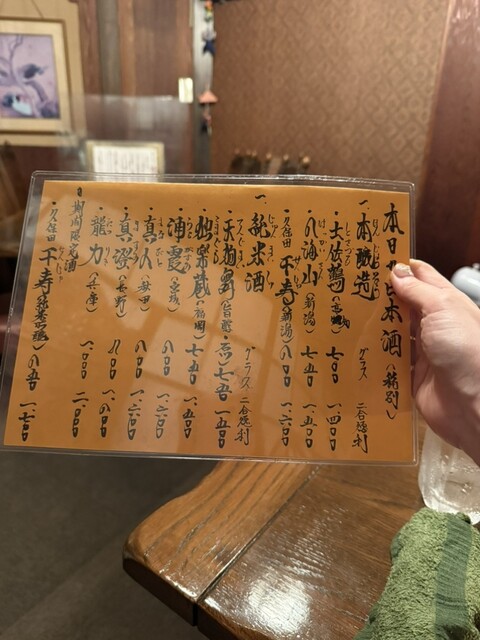 本日の日本酒（税別）
一、本醸造 グラス 二合徳利
・土佐鶴（高知） 七〇〇 一、四〇〇
・八海山（新潟） 七五〇 一、五〇〇
・久保田 千寿（新潟） 八〇〇 一、六〇〇
一、純米酒 グラス 二合徳利
・天狗舞 七五〇 一、五〇〇
・独楽蔵（福岡） 七五〇 一、五〇〇
・浦霞（宮城） 八〇〇 一、六〇〇
・真人（秋田） 八〇〇 一、六〇〇
・真澄（長野） 一、八〇〇
・龍力（兵庫） 一、〇〇〇 二、〇〇〇
期間限定酒
・久保田 千寿（純米吟醸） 八五〇 一、七〇〇